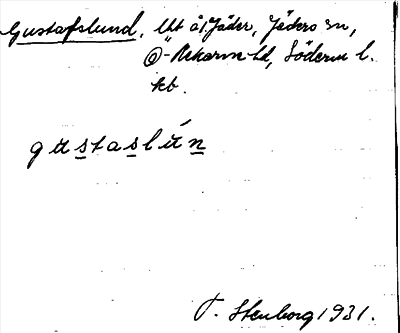 Gustafslund. Utt å i Jäder, Jäders sn,
Ö-Rekarne hd, Söderm l.
kb.
gustaslún
T. Stenborg 1931.